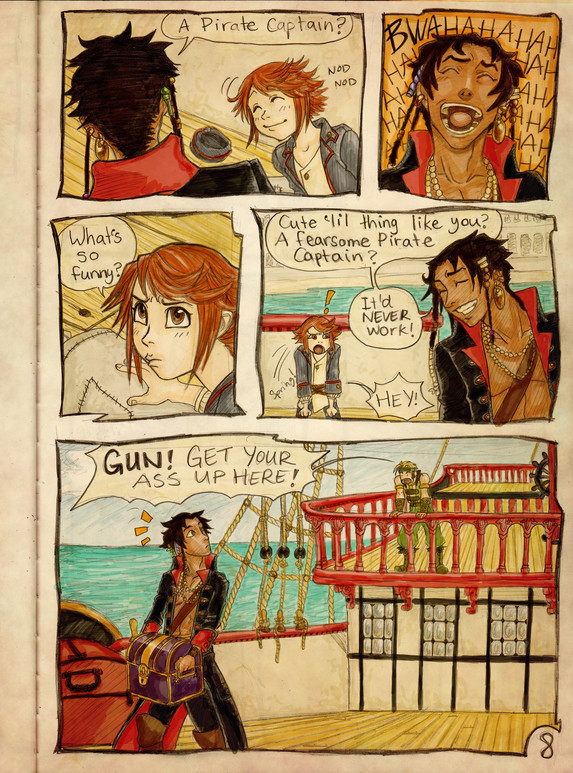 A Pirate Captain?
NOD
NOD
BWAHAHAHAHAH
What's
so
funny?
Cute 'lil thing like you?
A fearsome Pirate
Captain?
It'd
NEVER
WORK!
!
Spring!
HEY!
GUN! GET YOUR
ASS UP HERE!
8